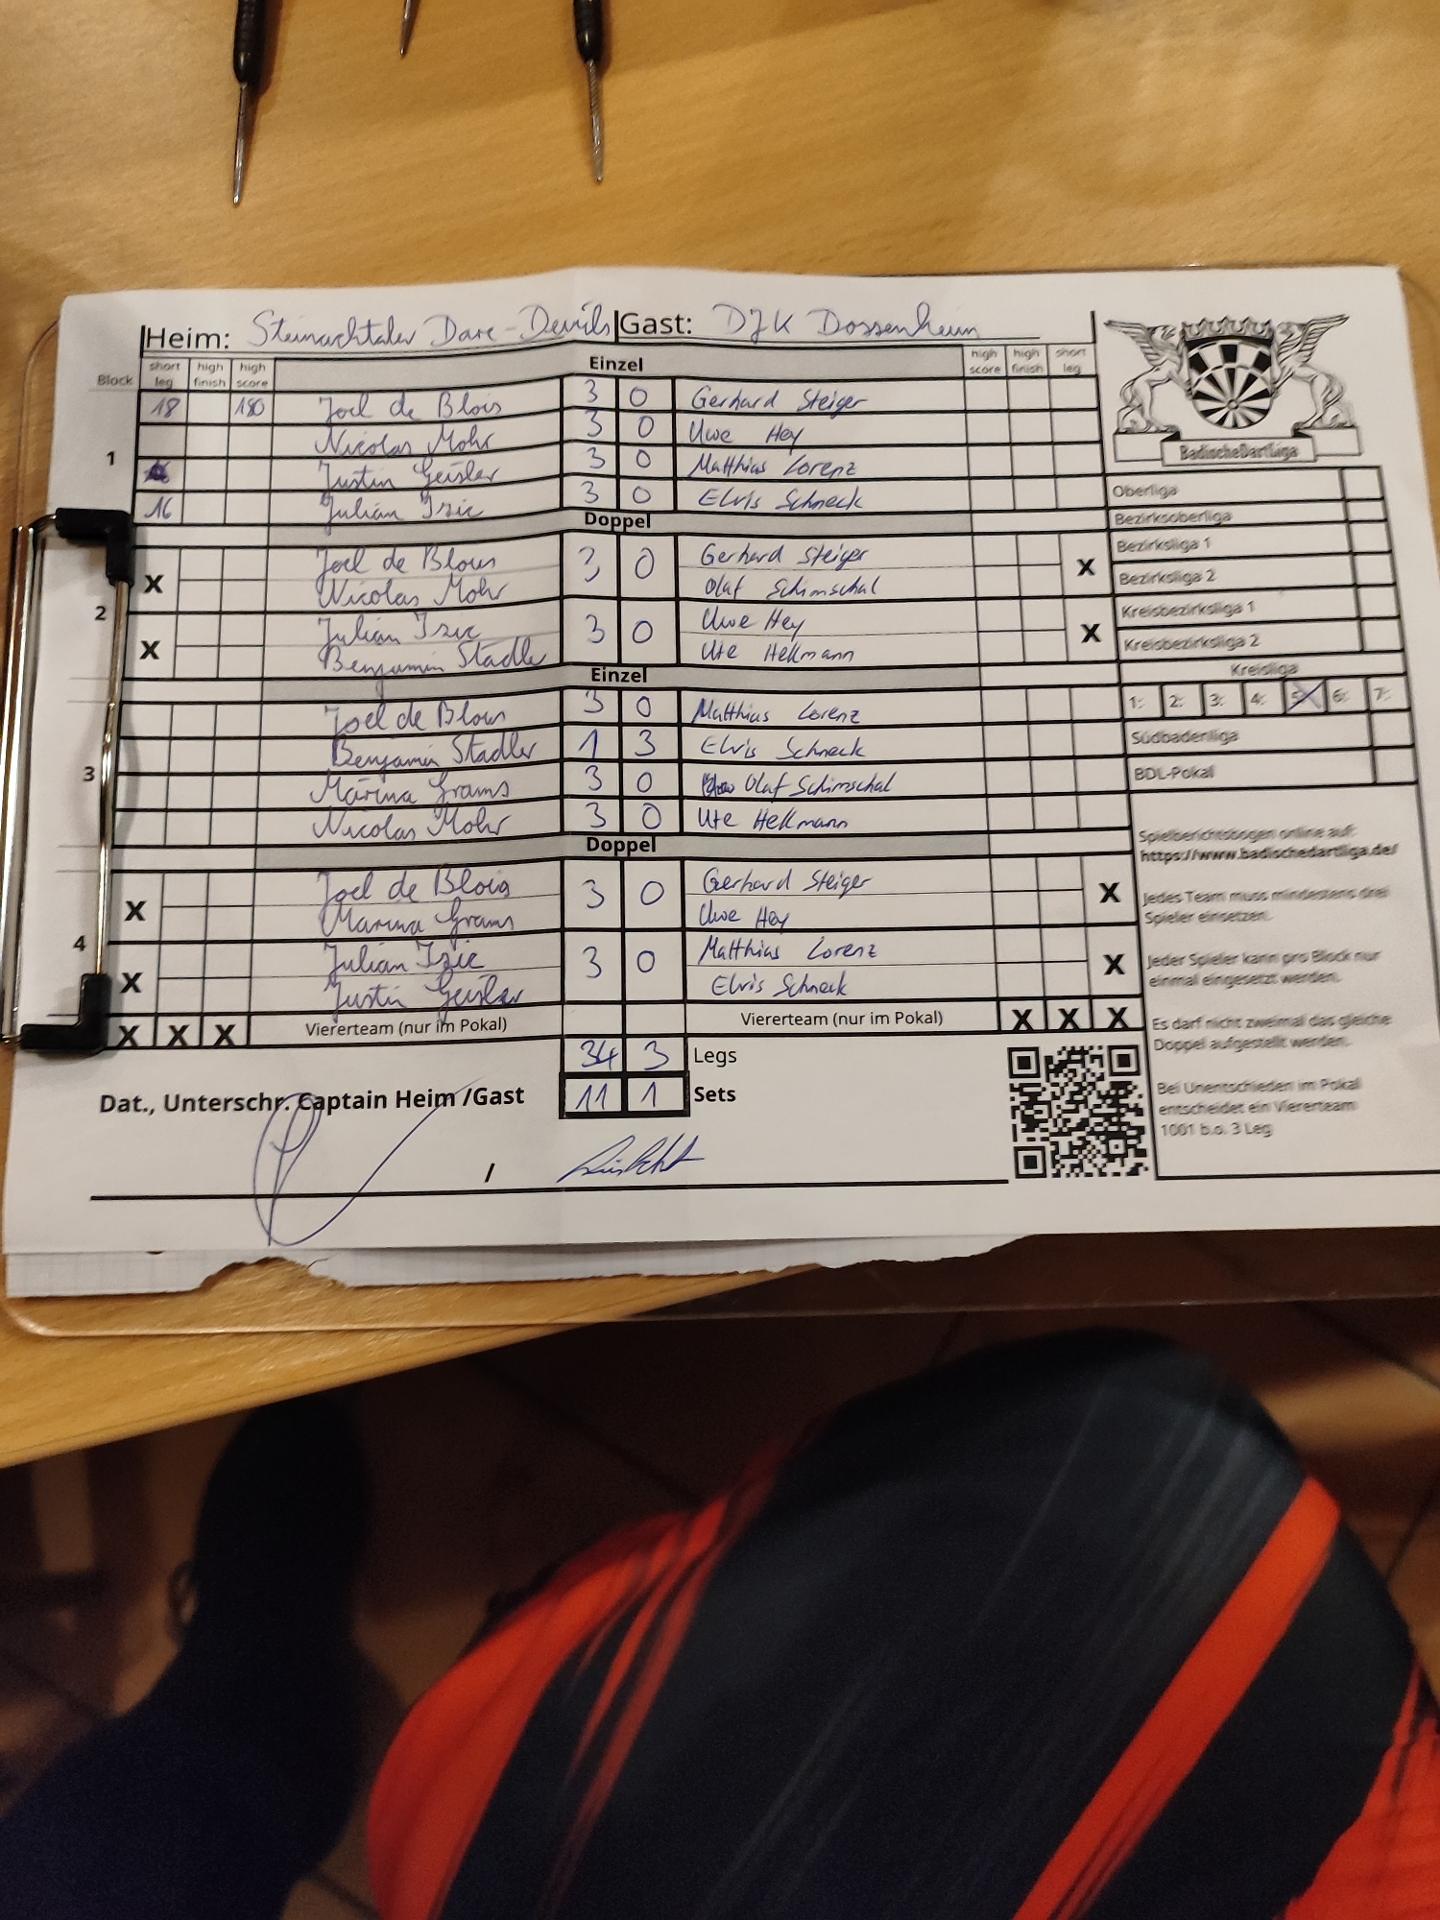 Heim: Steinachtaler Dare-Devils Gast: DJK Dossenheim
Block short leg high finish high score Einzel high score high finish short leg
1
18 180 Joel de Blois 3 0 Gerhard Steiger
Nicolas Mohr 3 0 Uwe Hey
Justin Geisler 3 0 Matthias Lorenz
16 Julian Izic 3 0 Elvis Schneck
Doppel
2
X Joel de Blois 3 0 Gerhard Steiger X
Nicolas Mohr Olaf Schimschal
X Julian Izic 3 0 Uwe Hey X
Benjamin Stadler Ute Hellmann
Einzel
3
Joel de Blois 3 0 Matthias Lorenz
Benjamin Stadler 1 3 Elvis Schneck
Marina Grams 3 0 Olaf Schimschal
Nicolas Mohr 3 0 Ute Hellmann
Doppel
4
X Joel de Blois 3 0 Gerhard Steiger X
Marina Grams Uwe Hey
X Julian Izic 3 0 Matthias Lorenz X
Justin Geisler Elvis Schneck
X X X Viererteam (nur im Pokal) Viererteam (nur im Pokal) X X X
34 3 Legs
11 1 Sets
Dat., Unterschr. Captain Heim /Gast
/
BadischeDartLiga
Oberliga
Bezirksoberliga
Bezirksliga 1
Bezirksliga 2
Kreisbezirksliga 1
Kreisbezirksliga 2
Kreisliga
1: 2: 3: 4: 5: X 6: 7:
Südbadenliga
BDL-Pokal
Spielberichtsbogen online auf:
https://www.badischedartliga.de/
Jedes Team muss mindestens drei
Spieler einsetzen.
Jeder Spieler kann pro Block nur
einmal eingesetzt werden.
Es darf nicht zweimal das gleiche
Doppel aufgestellt werden.
Bei Unentschieden im Pokal
entscheidet ein Viererteam
1001 b.o. 3 Leg